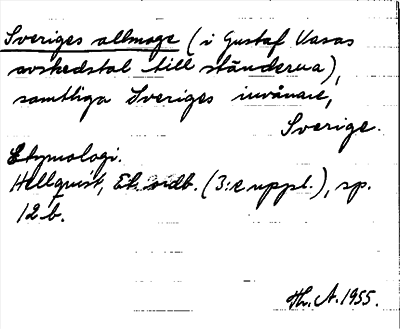 Sveriges allmoge (i Gustaf Vasas
avskedstal till ständerna),
samtliga Sveriges invånare,
Sverige.
Etymologi.
Hellquist, Et. ordb. (3:e uppl.), sp.
12 b.
Hr. A. 1955.